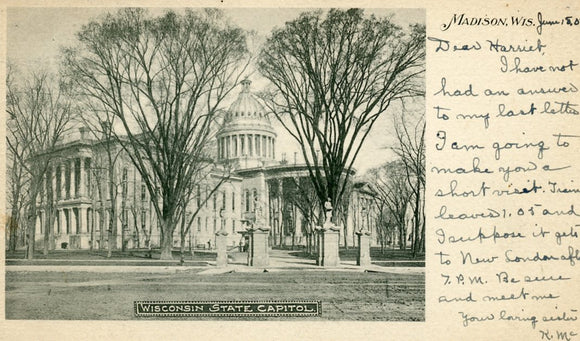 MADISON, WIS. June 15, 0
Dear Harriet,
I have not
had an answer
to my last lette
I am going to
make you a
short visit. Train
leaves 1.05 and
I suppose it gets
to New London aft
7. P.M. Be sure
and meet me
Your loving sister
K. Mc
WISCONSIN STATE CAPITOL.